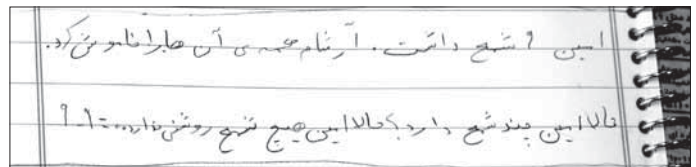 امین ۹ شمع داشت. آرشام همه ی آن ها را خاموش کرد.
حالا امین چند شمع دارد؟ حالا امین هیچ شمع روشنی ندارد. ۰=۹-۹